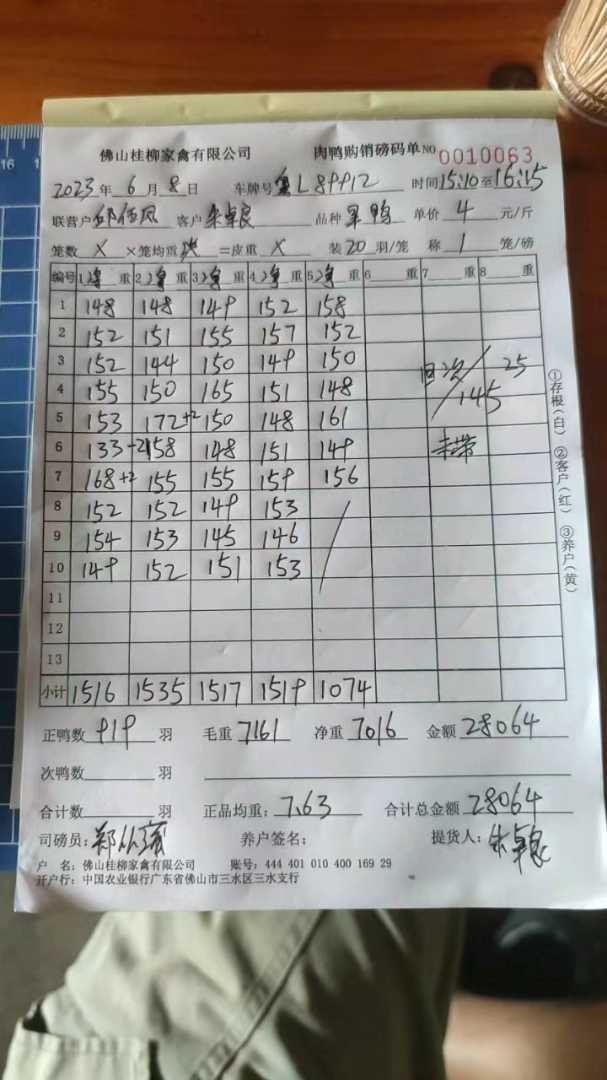 佛山桂柳家禽有限公司 肉鸭购销磅码单 NO 0010063
2023 年 6 月 8 日 车牌号 粤L89912 时间 15:10 至 16:15
联营户 客户 朱卓良 品种 单价 4 元/斤
笼数 X ×笼均重 =皮重 X 装 20 羽/笼 称 1 笼/磅
编号 1 净 重 2 净 重 3 净 重 4 净 重 5 净 重 6 重 7 重 8 重
1 148 148 149 152 158
2 152 151 155 157 152
3 152 144 150 149 150
4 155 150 165 151 148
5 153 172+2 150 148 161
6 133-2 158 148 151 149
7 168+2 155 155 159 156
8 152 152 149 153
9 154 153 145 146
10 149 152 151 153
11
12
13
小计 1516 1535 1517 1519 1074
25
145
①存根(白) ②客户(红) ③养户(黄)
正鸭数 919 羽 毛重 7161 净重 7016 金额 28064
次鸭数 羽
合计数 羽 正品均重: 7.63 合计总金额 28064
司磅员: 养户签名: 提货人: 朱卓良
户 名: 佛山桂柳家禽有限公司 账号: 444 401 010 400 169 29
开户行: 中国农业银行广东省佛山市三水区三水支行
16 15